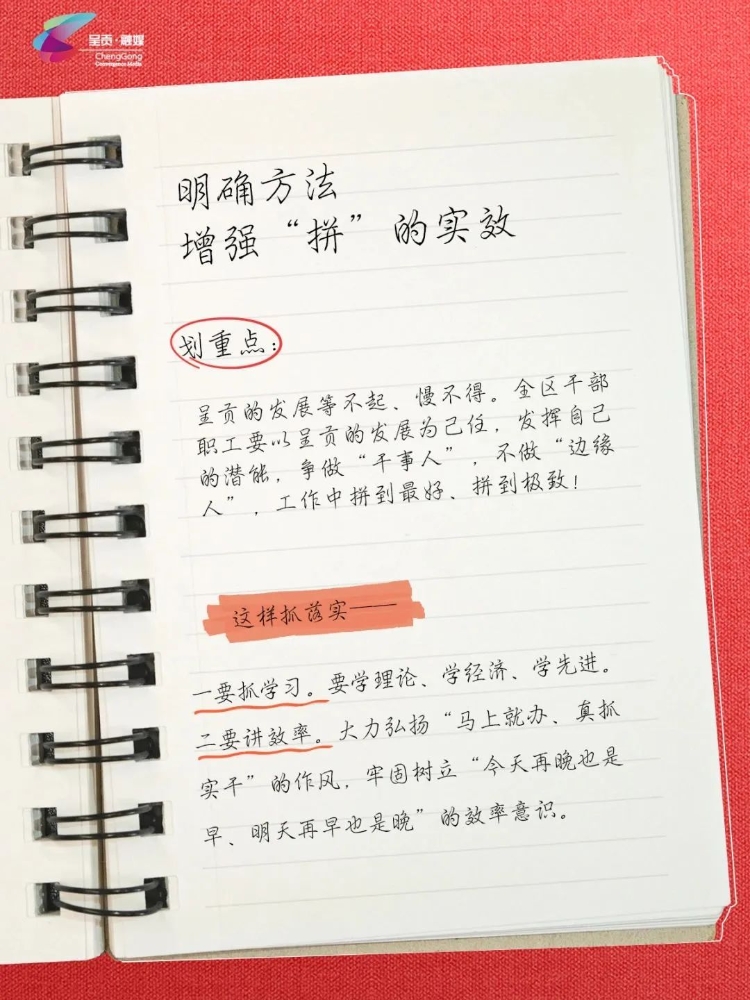 呈贡·融媒
ChengGong
Convergence Media
明确方法
增强“拼”的实效
划重点：
呈贡的发展等不起、慢不得。全区干部
职工要以呈贡的发展为己任，发挥自己
的潜能，争做“干事人”，不做“边缘
人”，工作中拼到最好、拼到极致！
这样抓落实——
一要抓学习。要学理论、学经济、学先进。
二要讲效率。大力弘扬“马上就办、真抓
实干”的作风，牢固树立“今天再晚也是
早、明天再早也是晚”的效率意识。